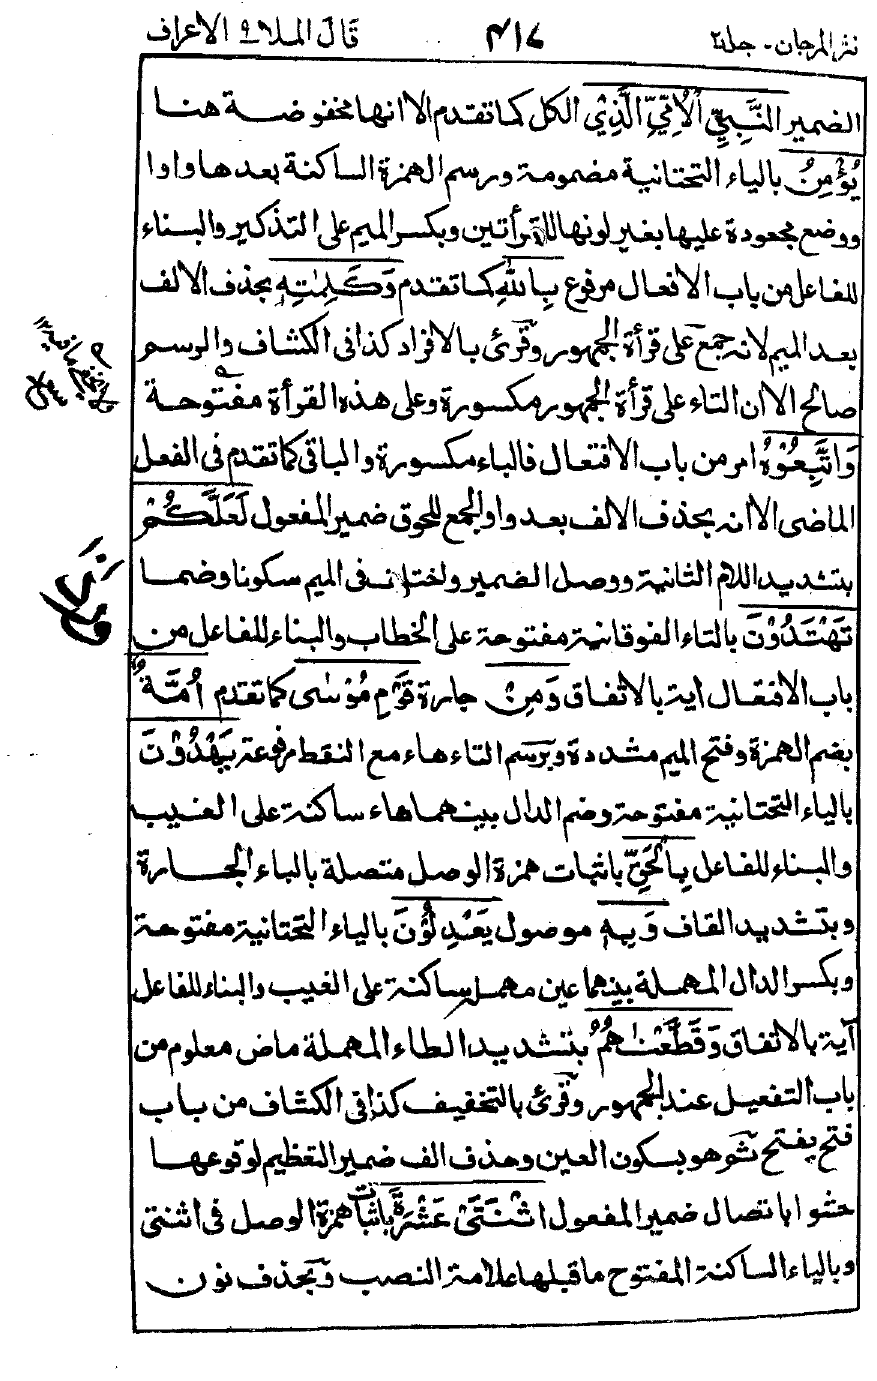 نثر المرجان - جلد ٢
٤١٧
قال الملا ٩ الاعراف
الضمير النَّبِيِّ الْاُمِّيِّ الَّذِيْ الكل كما تقدم الا انها مخفوضة هنا
يُؤْمِنُ بالياء التحتانية مضمومة ورسم الهمزة الساكنة بعدها واوا
ووضع مجعودة عليها بغير لونها للقرأتين وبكسر الميم على التذكير والبناء
للفاعل من باب الافعال مرفوع بِاللهِ كما تقدم وَكَلِمٰتِهٖ بحذف الالف
بعد الميم لانه جمع على قرأة الجمهور وقرئ بالافراد كذا فى الكشاف والرسم
صالح الا ان التاء على قرأة الجمهور مكسورة وعلى هذه القرأة مفتوحة
وَاتَّبِعُوْهُ امر من باب الافتعال فالباء مكسورة والباقى كما تقدم فى الفعل
الماضى الا انه بحذف الالف بعد واو الجمع للحوق ضمير المفعول لَعَلَّكُمْ
بتشديد اللام الثانية ووصل الضمير واختلاف فى الميم سكونا وضما
تَهْتَدُوْنَ بالتاء الفوقانية مفتوحة على الخطاب والبناء للفاعل من
باب الافتعال اية بالاتفاق وَمِنْ جارة قَوْمِ مُوْسٰى كما تقدم اُمَّةٌ
بضم الهمزة وفتح الميم مشددة وبرسم التاء هاء مع النقط مرفوعة يَهْدُوْنَ
بالياء التحتانية مفتوحة وضم الدال بينهما هاء ساكنة على الغيب
والبناء للفاعل بِالْحَقِّ باثبات همزة الوصل متصلة بالباء الجارة
وبتشديد القاف وَبِهٖ موصول يَعْدِلُوْنَ بالياء التحتانية مفتوحة
وبكسر الدال المهملة بينهما عين مهملة ساكنة على الغيب والبناء للفاعل
آية بالاتفاق وَقَطَّعْنٰهُمُ بتشديد الطاء المهملة ماض معلوم من
باب التفعيل عند الجمهور وقرئ بالتخفيف كذا فى الكشاف من باب
فتح يفتح ثم هو بسكون العين وحذف الف ضمير التعظيم لوقوعها
حشوا باتصال ضمير المفعول اثْنَتَيْ عَشْرَةَ باثبات همزة الوصل فى اثنتى
وبالياء الساكنة المفتوح ما قبلها علامة النصب وبحذف نون